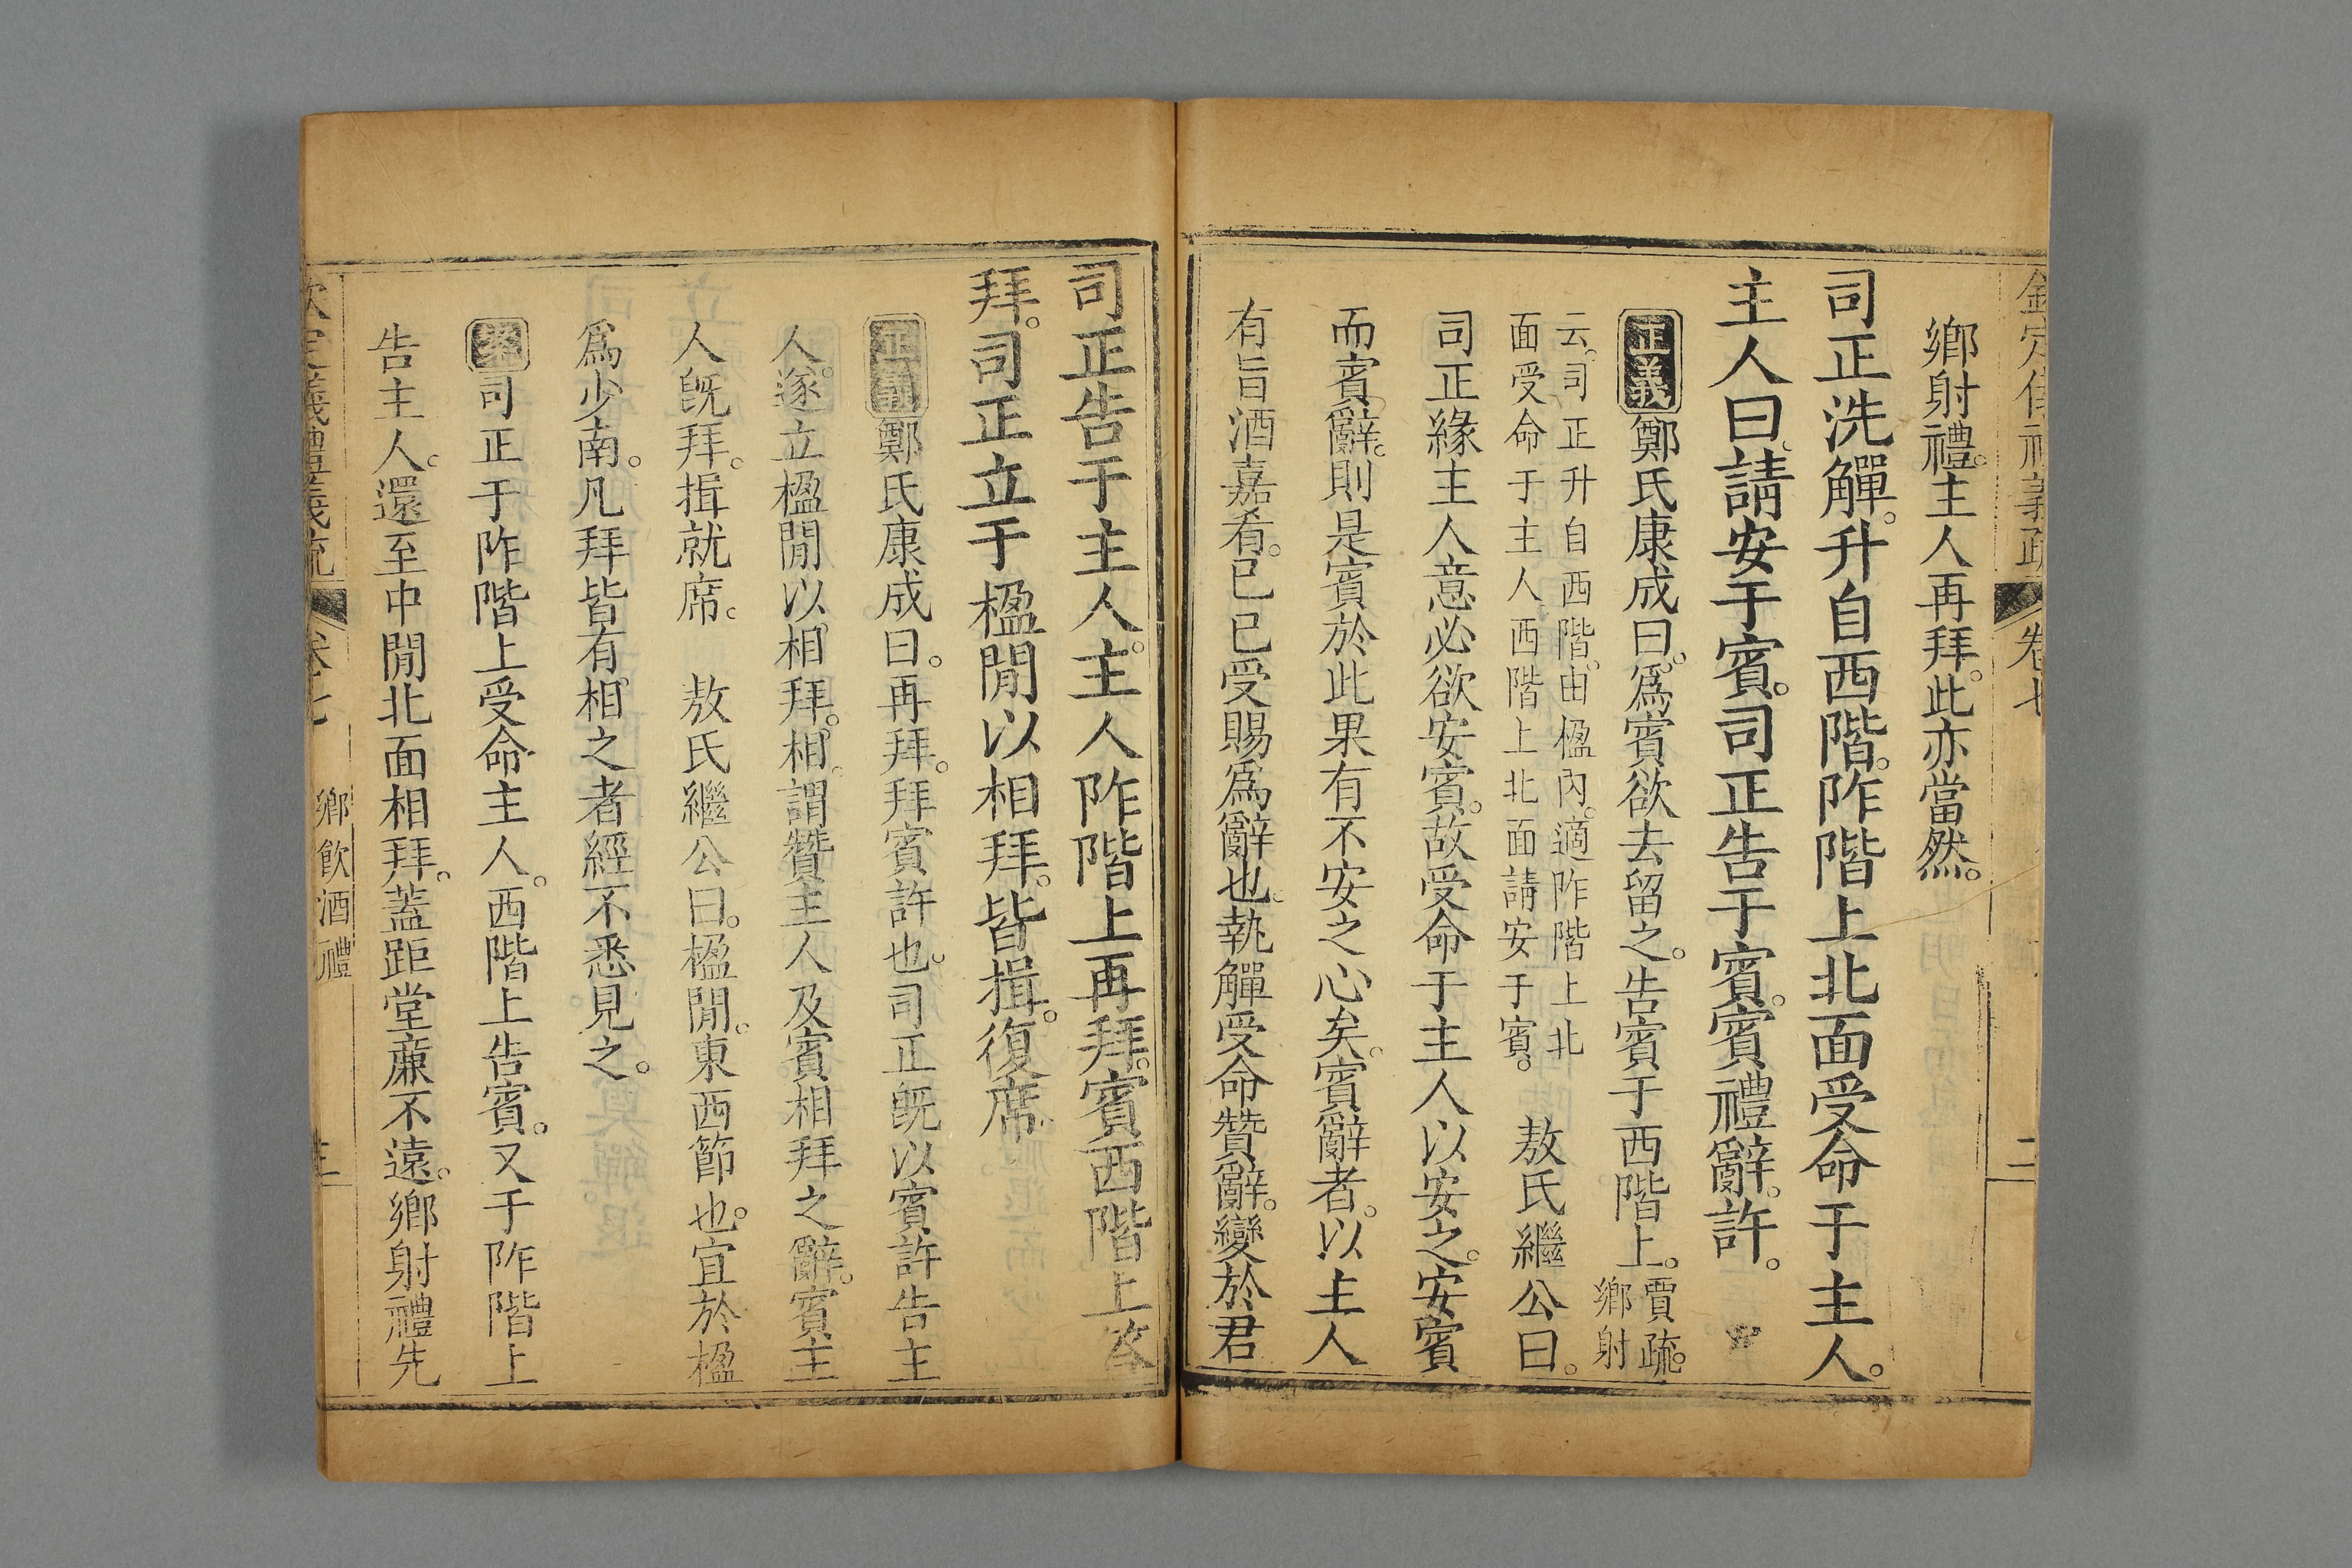 卷七
二
鄉射禮。主人再拜。此亦當然。
司正洗觶。升自西階。阼階上北面受命于主人。
主人曰。請安于賓。司正告于賓。賓禮辭。許。
正義鄭氏康成曰。爲賓欲去留之。告賓于西階上。賈疏。鄉射
云。司正升自西階。由楹內。適阼階上北
面受命于主人西階上北面請安于賓。 敖氏繼公曰。
司正緣主人意必欲安賓。故受命于主人以安之。安賓
而賓辭。則是賓於此果有不安之心矣。賓辭者。以主人
有旨酒嘉肴。已已受賜爲辭也。執觶受命贊辭。變於君
司正告于主人。主人阼階上再拜。賓西階上荅
拜。司正立于楹閒以相拜。皆揖。復席。
正義鄭氏康成曰。再拜。拜賓許也。司正既以賓許告主
人。遂立楹閒以相拜。相。謂贊主人及賓相拜之辭。賓主
人既拜。揖就席。 敖氏繼公曰。楹閒。東西節也。宜於楹
爲少南。凡拜皆有相之者經不悉見之。
案司正于阼階上受命主人。西階上告賓。又于阼階上
告主人。還至中閒北面相拜。蓋距堂廉不遠。鄉射禮先
欽定義禮義疏 卷七 鄉飲酒禮